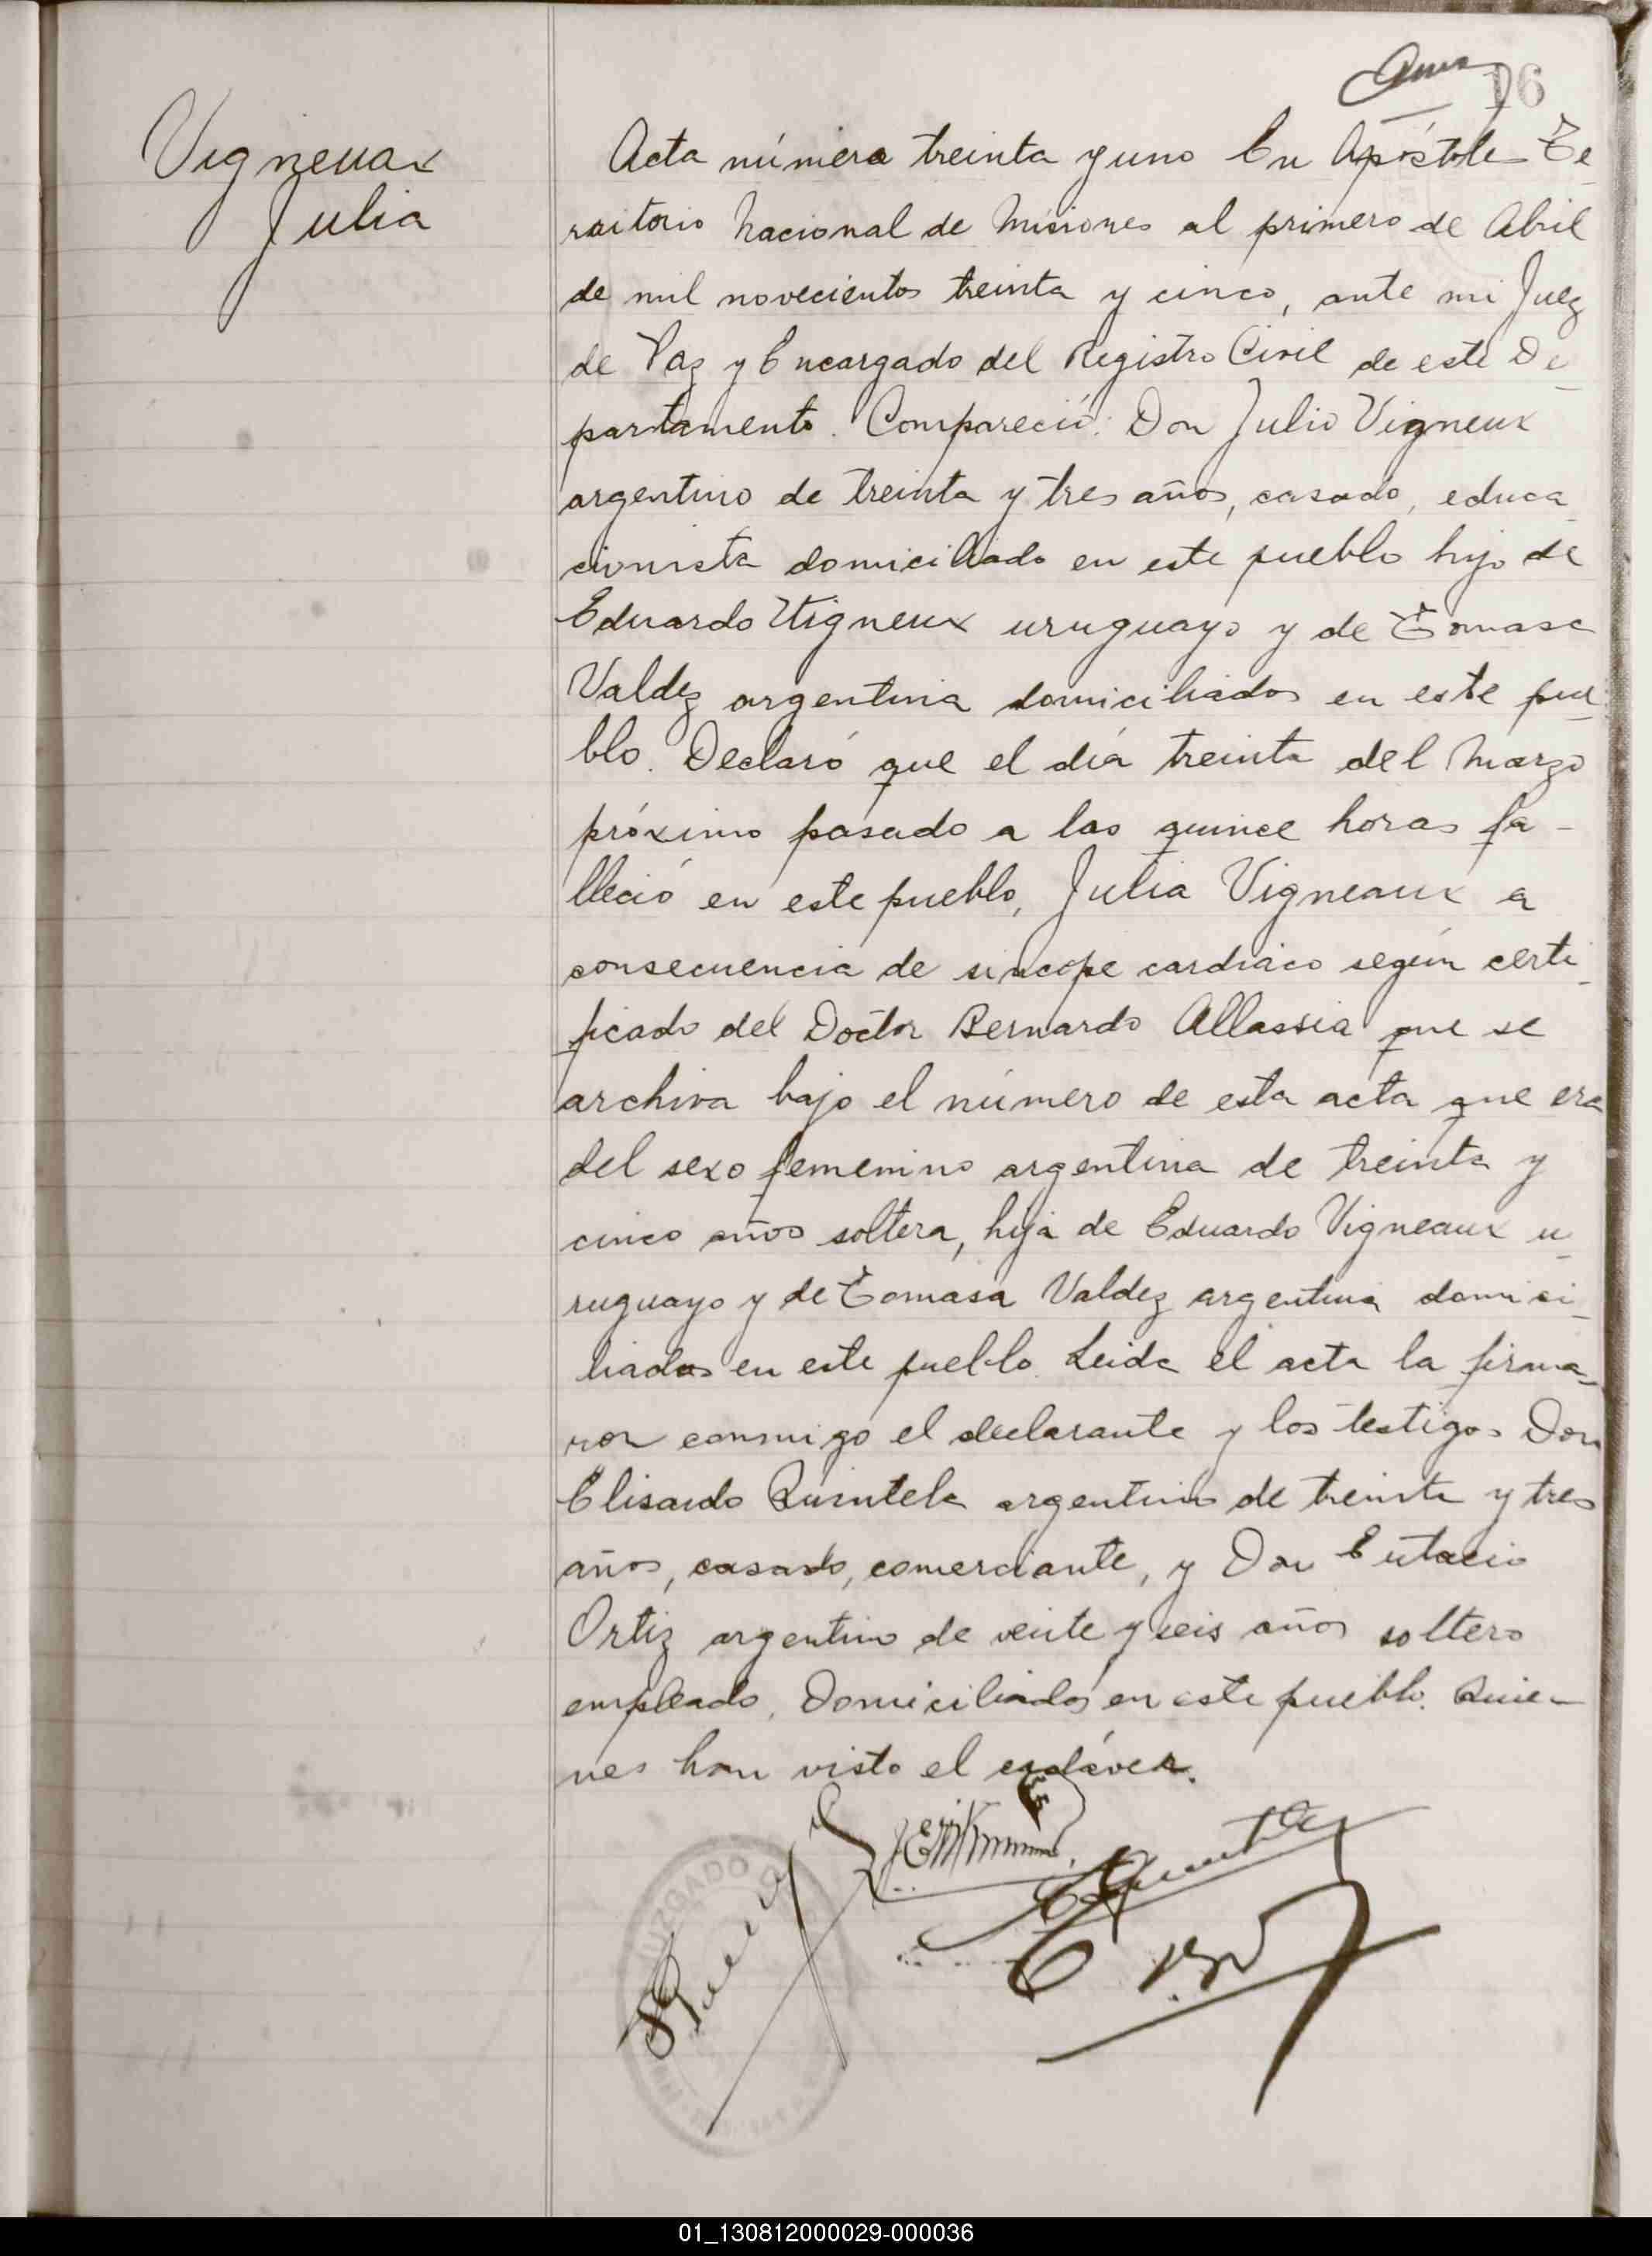 16
Vigneuax
Julia
Acta número treinta y uno En Apóstoles Te-
rritorio Nacional de Misiones al primero de Abril
de mil novecientos treinta y cinco, ante mi Juez
de Paz y Encargado del Registro Civil de este De-
partamento. Compareció: Don Julio Vigneux
argentino de treinta y tres años, casado, educa-
cionista domiciliado en este pueblo hijo de
Eduardo Vigneux uruguayo y de Tomasa
Valdez argentina domiciliados en este pue-
blo. Declaró que el día treinta del Marzo
próximo pasado a las quince horas fa-
lleció en este pueblo, Julia Vigneaux a
consecuencia de sincope cardiaco según certi-
ficado del Doctor Bernardo Allassia que se
archiva bajo el número de esta acta que era
del sexo femenino argentina de treinta y
cinco años soltera, hija de Eduardo Vigneaux u-
ruguayo y de Tomasa Valdez argentina domici-
liados en este pueblo. Leida el acta la firma-
ron conmigo el declarante y los testigos Don
Elisardo Quintela argentino de treinta y tres
años, casado, comerciante, y Don Eutacio
Ortiz argentino de veinte y seis años soltero
empleado, Domiciliados en este pueblo. Quie-
nes han visto el cadáver.
JUZGADO
01_130812000029-000036